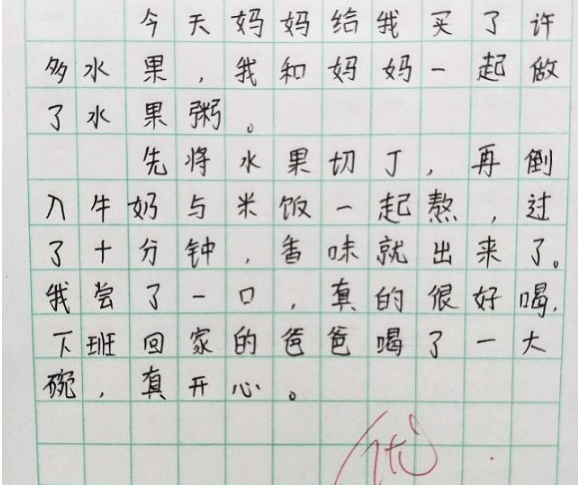 今天妈妈给我买了许
多水果，我和妈妈一起做
了水果粥。
先将水果切丁，再倒
入牛奶与米饭一起熬，过
了十分钟，香味就出来了。
我尝了一口，真的很好喝，
下班回家的爸爸喝了一大
碗，真开心。
优